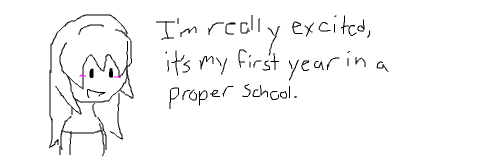 I'm really excited,
it's my first year in a
proper school.